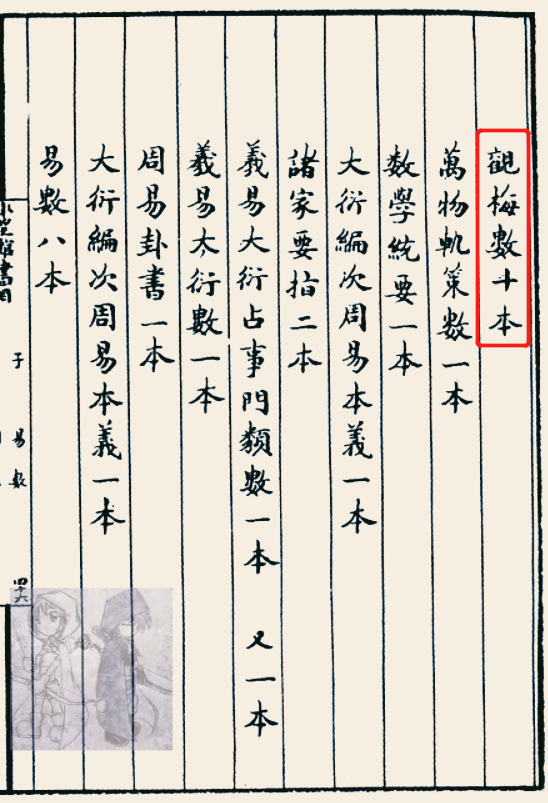 觀梅數十本
萬物軌策數一本
数學統要一本
大衍編次周易本義一本
諸家要指二本
義易大衍占事門類數一本　又一本
義易大衍數一本
周易卦書一本
大衍編次周易本義一本
易數八本
書目
子
易数
四十六